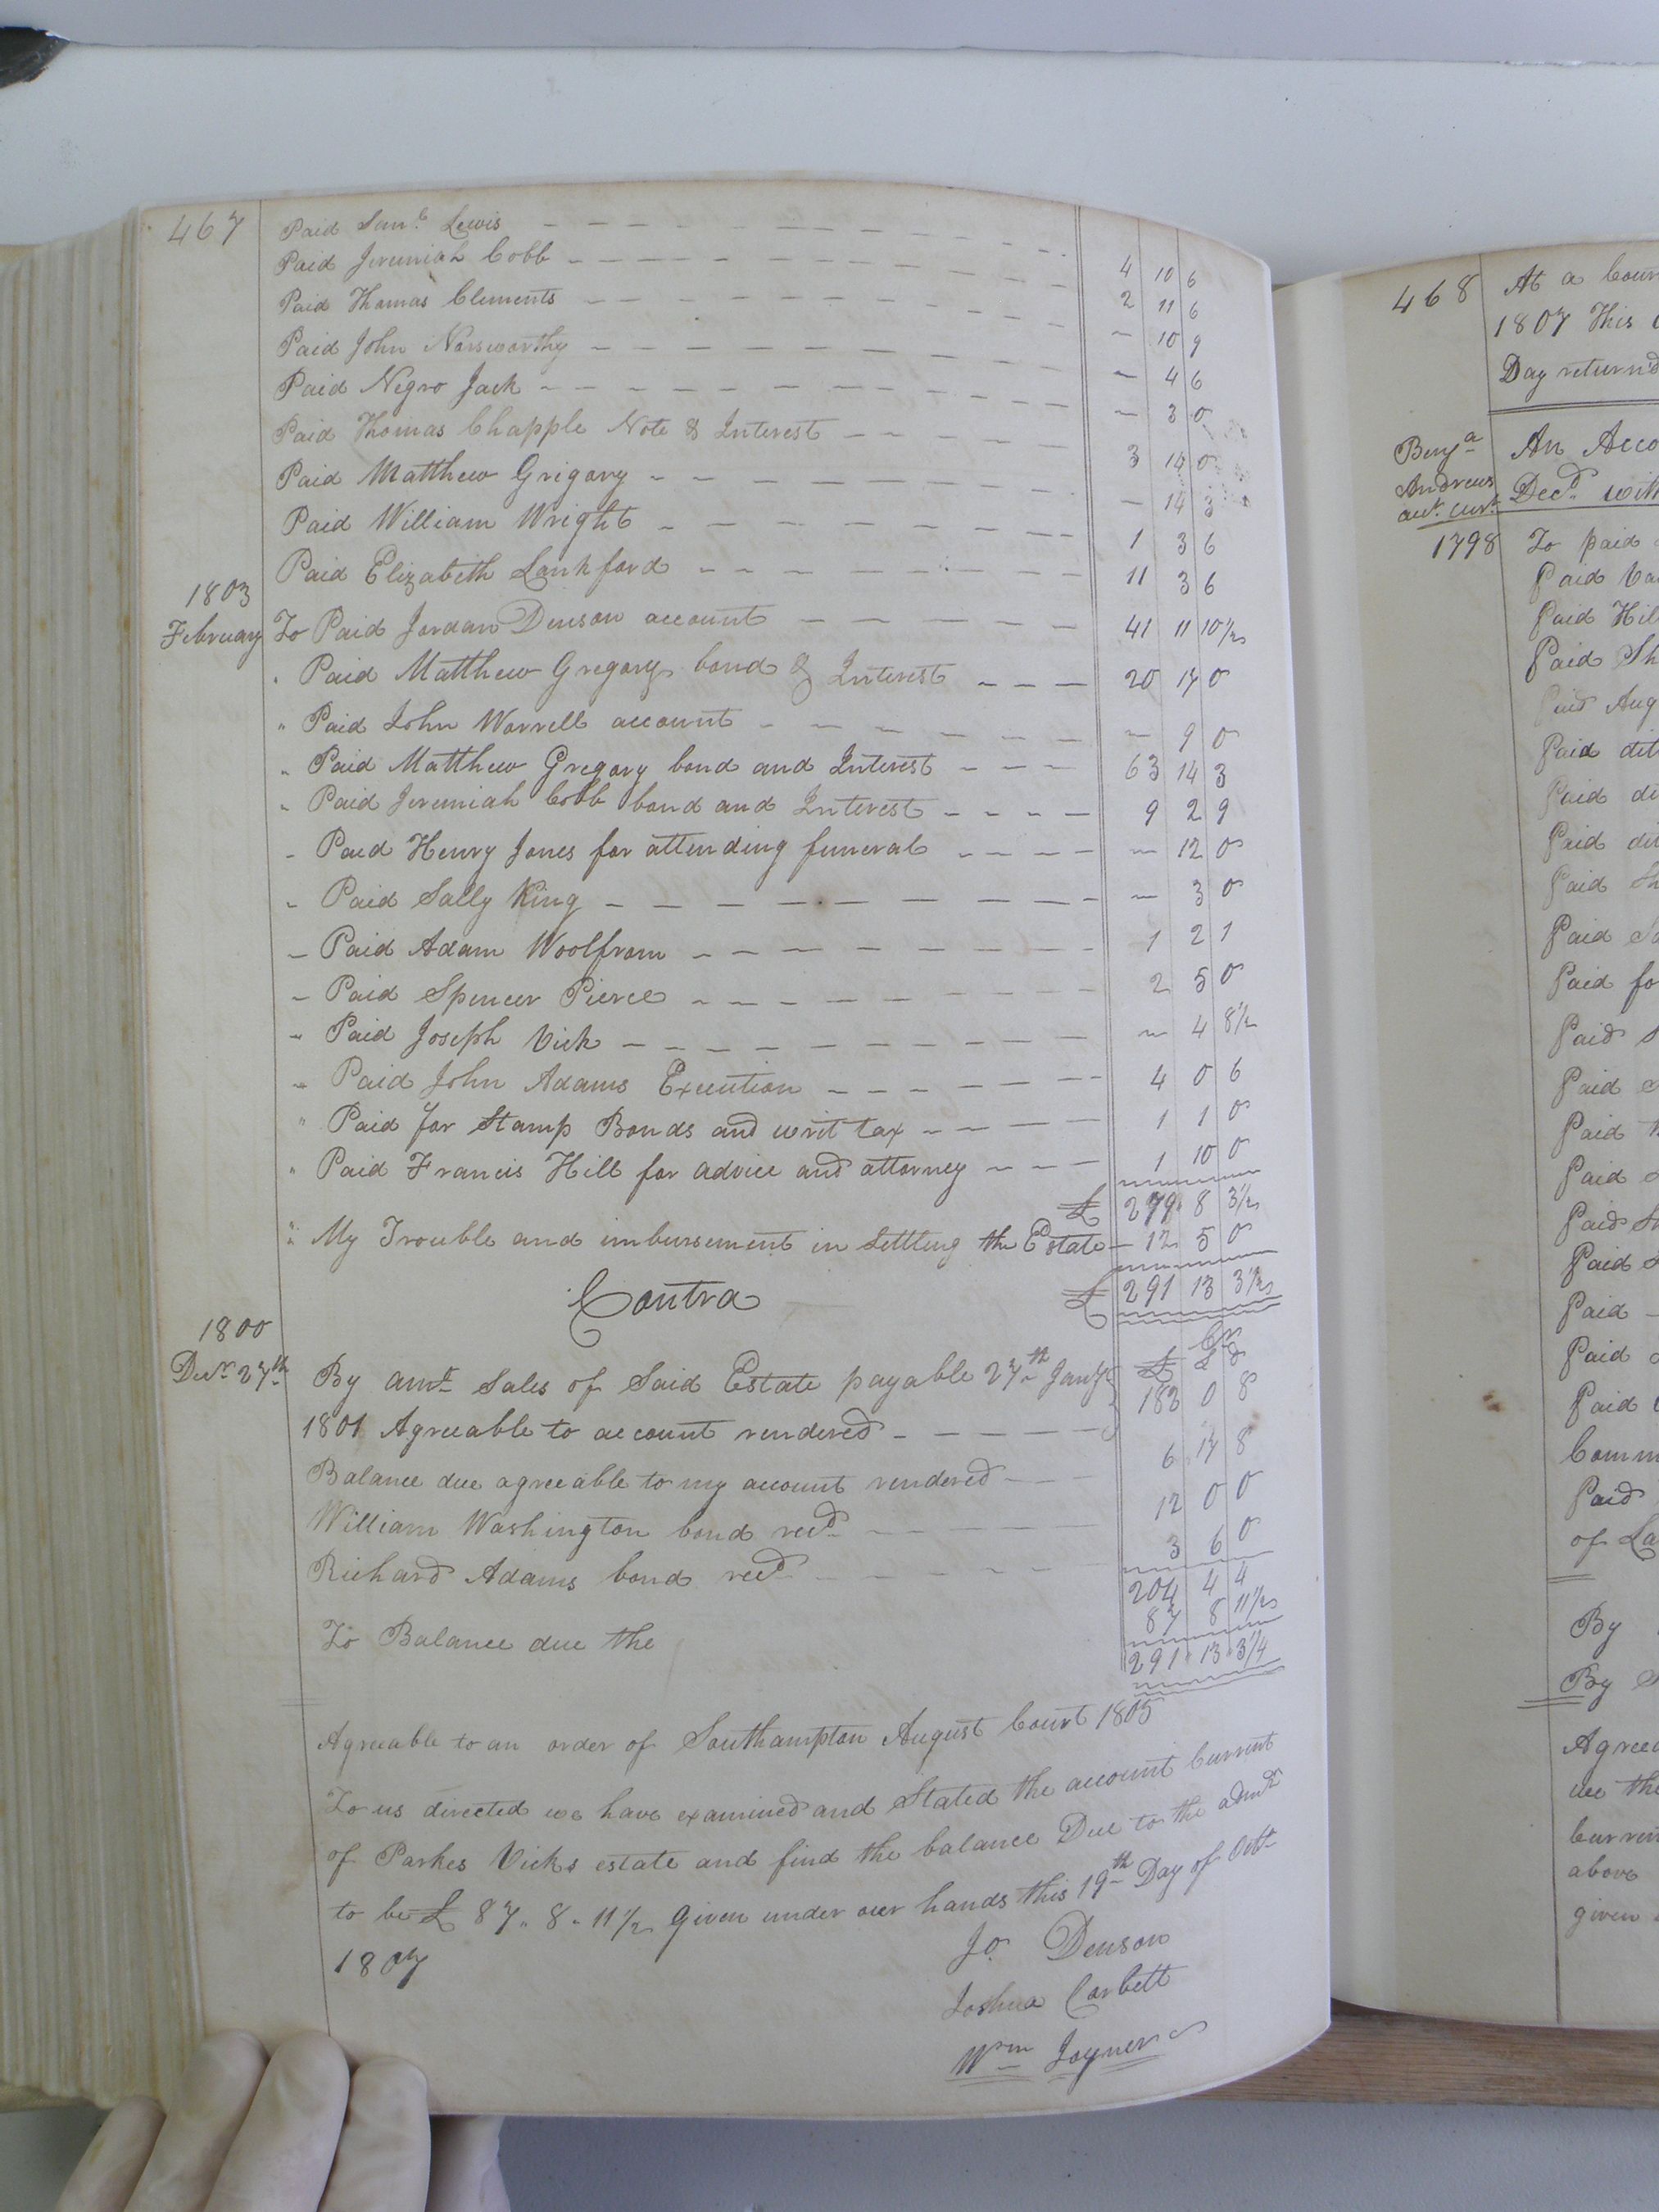 467
Paid Sam.l Lewis 4 10 6
Paid Jeremiah Cobb 2 11 6
Paid Thomas Clements - 10 9
Paid John Norsworthy - 4 6
Paid Negro Jack - 3 0
Paid Thomas Chapple Note & Interest 3 14 0
Paid Matthew Grigory - 14 3
Paid William Wright 1 3 6
Paid Elizabeth Lankford 11 3 6
1803
February To Paid Jordan Denson account 41 11 10 1/2
" Paid Matthew Gregory bond & Interest 20 17 0
" Paid John Worrell account - 9 0
" Paid Matthew Gregory bond and Interest 63 14 3
" Paid Jeremiah Cobb bond and Interest 9 2 9
" Paid Henry Jones for attending funeral - 12 0
" Paid Sally King - 3 0
" Paid Adam Woolfrom 1 2 1
" Paid Spencer Pierce 2 5 0
" Paid Joseph Vick - 4 8 1/2
" Paid John Adams Execution 4 0 6
" Paid for Stamp Bonds and writ tax 1 1 0
" Paid Francis Hill for advice and attorney 1 10 0
£ 279 8 3 1/2
" My Trouble and imbursement in Settling the Estate 12 5 0
£ 291 13 3 1/2
Contra
Cr
£ S d
1800
Decr. 27th By amt. Sales of Said Estate payable 27th Jany 182 0 8
1801 Agreeable to account rendered
Balance due agreeable to my account rendered 6 17 8
William Washington bond recd. 12 0 0
Richard Adams bond recd. 3 6 0
204 4 4
To Balance due the 87 8 11 1/2
291 13 3 1/4
Agreeable to an order of Southampton August Court 1805
To us directed we have examined and Stated the account Current
of Parkes Vicks estate and find the balance Due to the admr.
to be £ 87. 8. 11 1/2 Given under our hands this 19th Day of Octr.
1807
Jo. Denson
Joshua Corbett
Wm Joyner
468 At a Cour
1807 This
Day return'd
Benja
Andrews
act. curt. An Acco
Decd. with
1798 To paid
Paid
Paid Hil
Paid Sh
Paid Aug
Paid dit
Paid di
Paid dit
Paid Sh
Paid
Paid fo
Paid
Paid
Paid
Paid
Paid
Paid
Paid
Paid
Paid
Comm
Paid
of La
By
By
Agree
we the
Curren
above
given